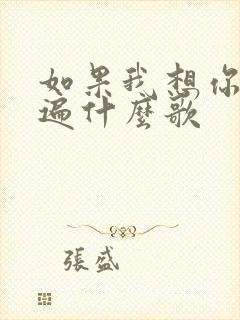 如果我想你
遍什麼歌
張盛